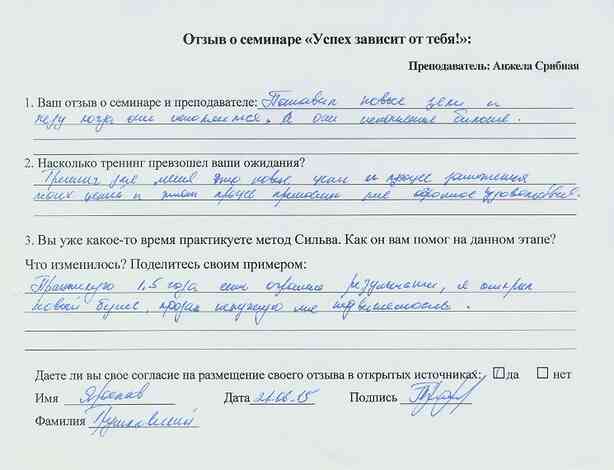 Отзыв о семинаре «Успех зависит от тебя!»:
Преподаватель: Анжела Срибная
1. Ваш отзыв о семинаре и преподавателе: Поставил новые цели и
жду когда они исполнятся. А они исполнение больше.
2. Насколько тренинг превзошел ваши ожидания?
Тренинг для меня это новые цели и процес достижения
моих целей и этот процес приносит мне огромное удовольствие.
3. Вы уже какое-то время практикуете метод Сильва. Как он вам помог на данном этапе?
Что изменилось? Поделитесь своим примером:
Практикую 1,5 года есть огромные результаты, я открыл
новый бизнес, продал ненужную мне недвижимость.
Даете ли вы свое согласие на размещение своего отзыва в открытых источниках: да нет
Имя Ярослав Дата 21.06.15 Подпись
Фамилия